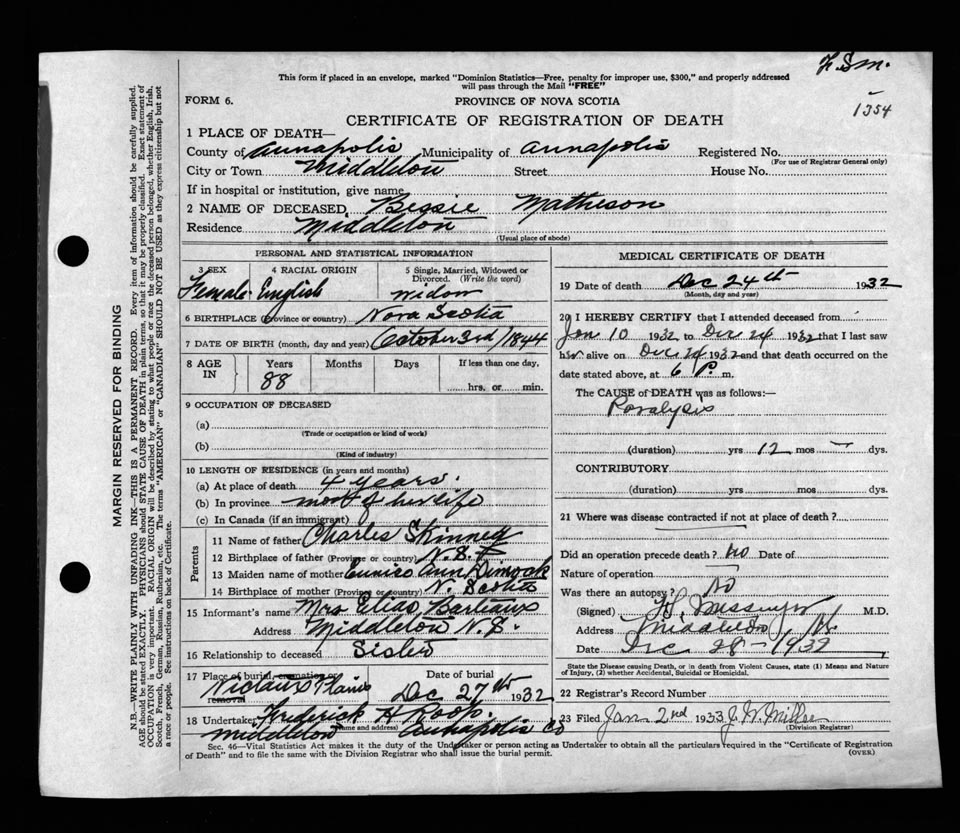 F.S.M.
1354
This form if placed in an envelope, marked "Dominion Statistics—Free, penalty for improper use, $300," and properly addressed
will pass through the Mail "FREE"
FORM 6.
PROVINCE OF NOVA SCOTIA
CERTIFICATE OF REGISTRATION OF DEATH
1 PLACE OF DEATH—
County of Annapolis Municipality of Annapolis Registered No.
(For use of Registrar General only)
City or Town Middleton Street House No.
If in hospital or institution, give name
2 NAME OF DECEASED Bessie Matheson
Residence Middleton
(Usual place of abode)
PERSONAL AND STATISTICAL INFORMATION
3 SEX Female
4 RACIAL ORIGIN English
5 Single, Married, Widowed or Divorced. (Write the word) Widow
6 BIRTHPLACE (Province or country) Nova Scotia
7 DATE OF BIRTH (month, day and year) October 3rd/1844
8 AGE IN Years 88 Months Days If less than one day, hrs. or min.
9 OCCUPATION OF DECEASED
(a)
(Trade or occupation or kind of work)
(b)
(Kind of industry)
10 LENGTH OF RESIDENCE (in years and months)
(a) At place of death 4 years.
(b) In province most of her life
(c) In Canada (if an immigrant)
Parents
11 Name of father Charles Skinned
12 Birthplace of father (Province or country) N.S.
13 Maiden name of mother Eunise Ann Dimock
14 Birthplace of mother (Province or country) N. Scotia
15 Informant's name Mrs Barteaux
Address Middleton N.S.
16 Relationship to deceased Sister
17 Place of burial, cremation or removal Nictaux Plains
Date of burial Dec 27th 1932
18 Undertaker Frederick H Roop.
(Name and address)
Middleton Annapolis Co
MEDICAL CERTIFICATE OF DEATH
19 Date of death Dec 24th 1932
(Month, day and year)
20 I HEREBY CERTIFY that I attended deceased from
Jan 10 1932 to Dec 24 1932 that I last saw
her alive on Dec 24 1932 and that death occurred on the
date stated above, at 6 P. m.
The CAUSE OF DEATH was as follows:—
Paralysis
(duration) yrs 12 mos — dys.
CONTRIBUTORY
(duration) yrs mos dys.
21 Where was disease contracted if not at place of death?
Did an operation precede death? no Date of
Nature of operation
Was there an autopsy? No
(Signed) Messenger M.D.
Address Middleton
Date Dec 28 - 1932
State the Disease causing Death, or in death from Violent Causes, state (1) Means and Nature
of Injury, (2) whether Accidental, Suicidal or Homicidal.
22 Registrar's Record Number
23 Filed Jan 2nd 1933 J. W. Miller
(Division Registrar)
Sec. 46—Vital Statistics Act makes it the duty of the Undertaker or person acting as Undertaker to obtain all the particulars required in the "Certificate of Registration
of Death" and to file the same with the Division Registrar who shall issue the burial permit.
(OVER)
MARGIN RESERVED FOR BINDING
N.B.—WRITE PLAINLY WITH UNFADING INK—THIS IS A PERMANENT RECORD. Every item of information should be carefully supplied.
AGE should be stated EXACTLY. PHYSICIANS should STATE CAUSE OF DEATH in plain terms, so that it may be properly classified. Exact statement of
OCCUPATION is very important. RACIAL ORIGIN will be described by stating to what people or race the deceased person belonged, whether English, Irish,
Scotch, French, German, Russian, Ruthenian, etc. The terms "AMERICAN" or "CANADIAN" SHOULD NOT BE USED as they express citizenship but not
a race or people. See instructions on back of Certificate.